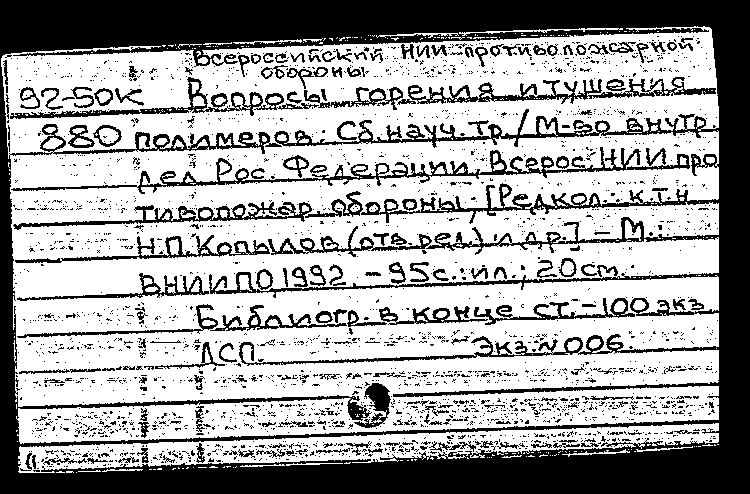 Всероссийский НИИ противопожарной
обороны
92-50К Вопросы горения и тушения
880 полимеров: Сб. науч. тр. / М-во внутр.
дел Рос. Федерации, Всерос. НИИ про
тивопожар. обороны; [Редкол.: к.т.н
Н.П. Копылов (отв. ред.) и др.] - М.:
ВНИИПО, 1992. - 95с.: ил.; 20 см.
Библиогр. в конце ст. - 100 экз
ДСП. Экз. N 006.